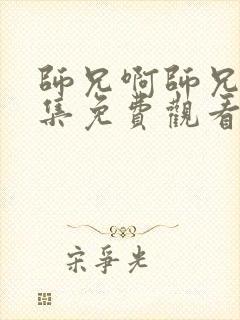 師兄啊師兄
集免費觀看
宋爭光